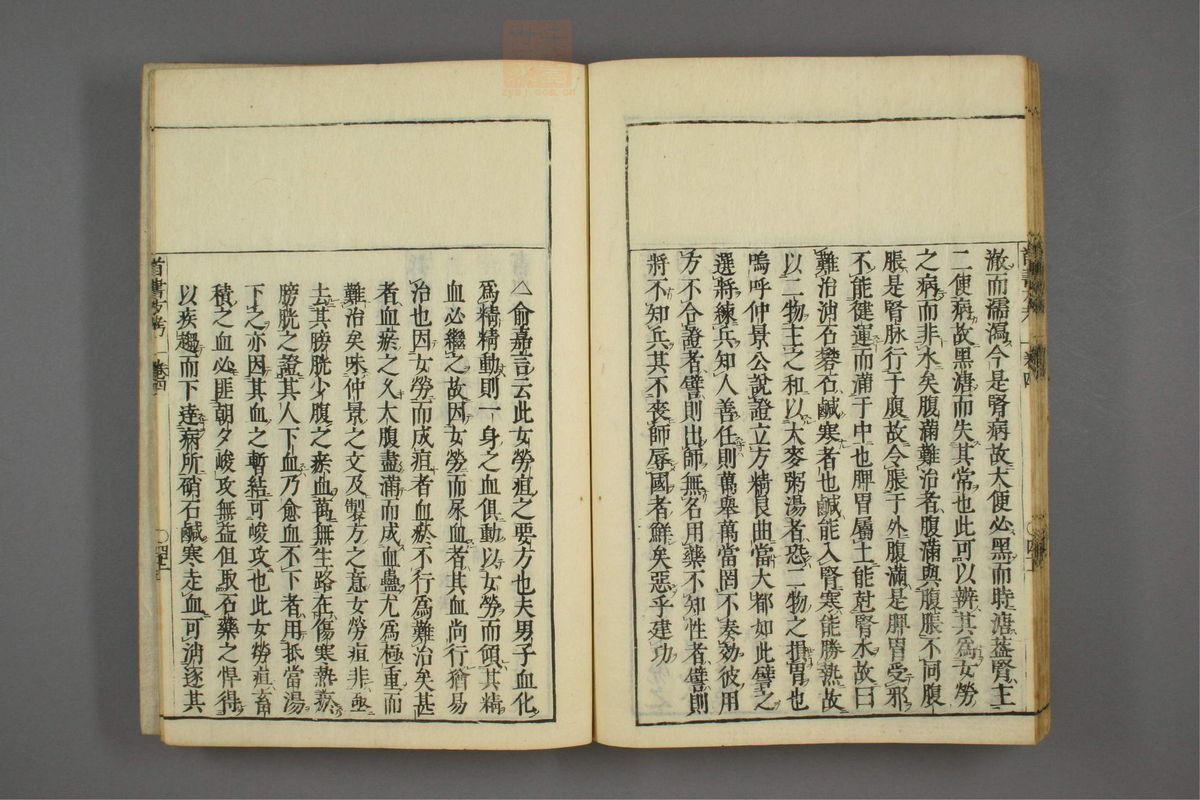 澈而濡瀉今是腎病故大便必黑而時溏蓋腎主
二便病故黑溏而失其常也此可以辨其爲女勞
之病而非水矣腹滿難治者腹滿與腹脹不同腹
脹是腎脉行于腹故令脹于外腹滿是脾胃受邪
不能健運而滿于中也脾胃屬土能尅腎水故曰
難治消石礬石鹹寒者也鹹能入腎寒能勝熱故
以二物主之和以大麥粥湯者恐二物之損胃也
嗚呼仲景公說證立方精良曲當大都如此譬之
選將練兵知人善任則萬舉萬當罔不奏効彼用
方不合證者譬則出師無名用藥不知性者譬則
將不知兵其不喪師辱國者鮮矣惡乎建功
△俞嘉言云此女勞疸之要方也夫男子血化
爲精精動則一身之血俱動以女勞而傾其精
血必繼之故因女勞而尿血者其血尚行猶易
治也因女勞而成疸者血瘀不行爲難治矣甚
者血瘀之久大腹盡滿而成血蠱尤爲極重而
難治矣味仲景之文及製方之意女勞疸非亟
去其膀胱少腹之瘀血萬無生路在傷寒熱瘀
膀胱之證其人下血乃愈血不下者用抵當湯
下之亦因其血之暫結可峻攻也此女勞疸畜
積之血必匪朝夕峻攻無益但取石藥之悍得
以疾趨而下達病所硝石鹹寒走血可消逐其
首書方考
卷四